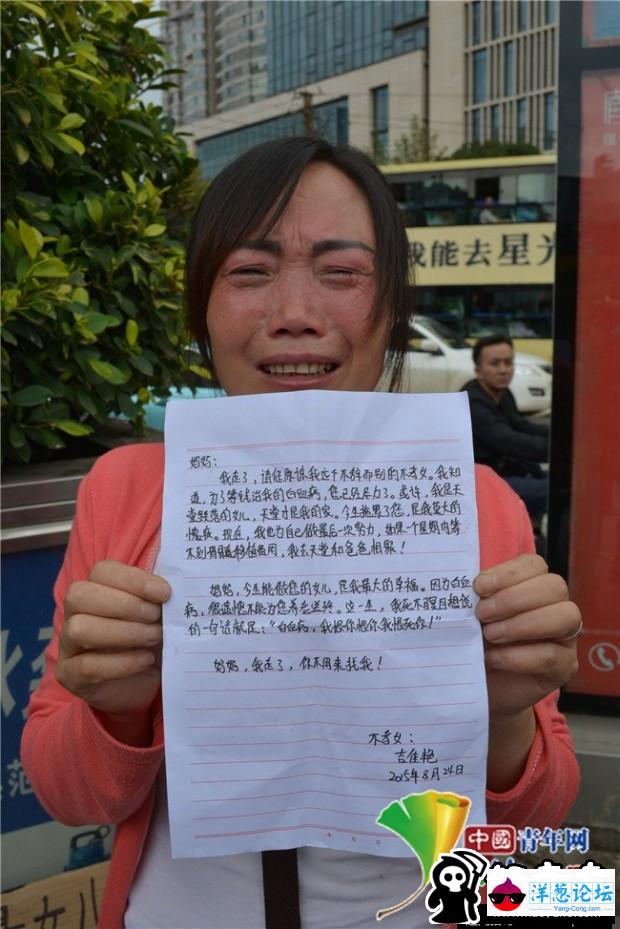 我能去星光
妈妈:
我走了,请您原谅我这个不辞而别的不孝女。我知
道,为了筹钱治我的白血病,您已经尽力了。或许,我是天
堂跌落的女儿,天堂才是我的家。今生拖累了您,是我莫大的
愧疚。现在,我也为自己做最后一次努力,如果一个星期内筹
不到骨髓移植费用,我去天堂和爸爸相聚!
妈妈,今生能做您的女儿,是我最大的幸福。因为白血
病,很遗憾不能为您养老送终。这一生,我死不瞑目想说
的一句话就是:“白血病,我恨你恨你我恨死你!”
妈妈,我走了,你不用来找我!
不孝女:
吉佳艳
2015年8月24日
女儿
中國青年网
洋葱论坛
Yang-Cong.com